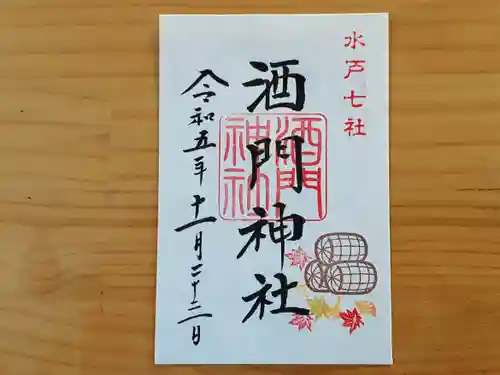 水戸七社
酒門神社
酒門神社
令和五年十一月二十三日